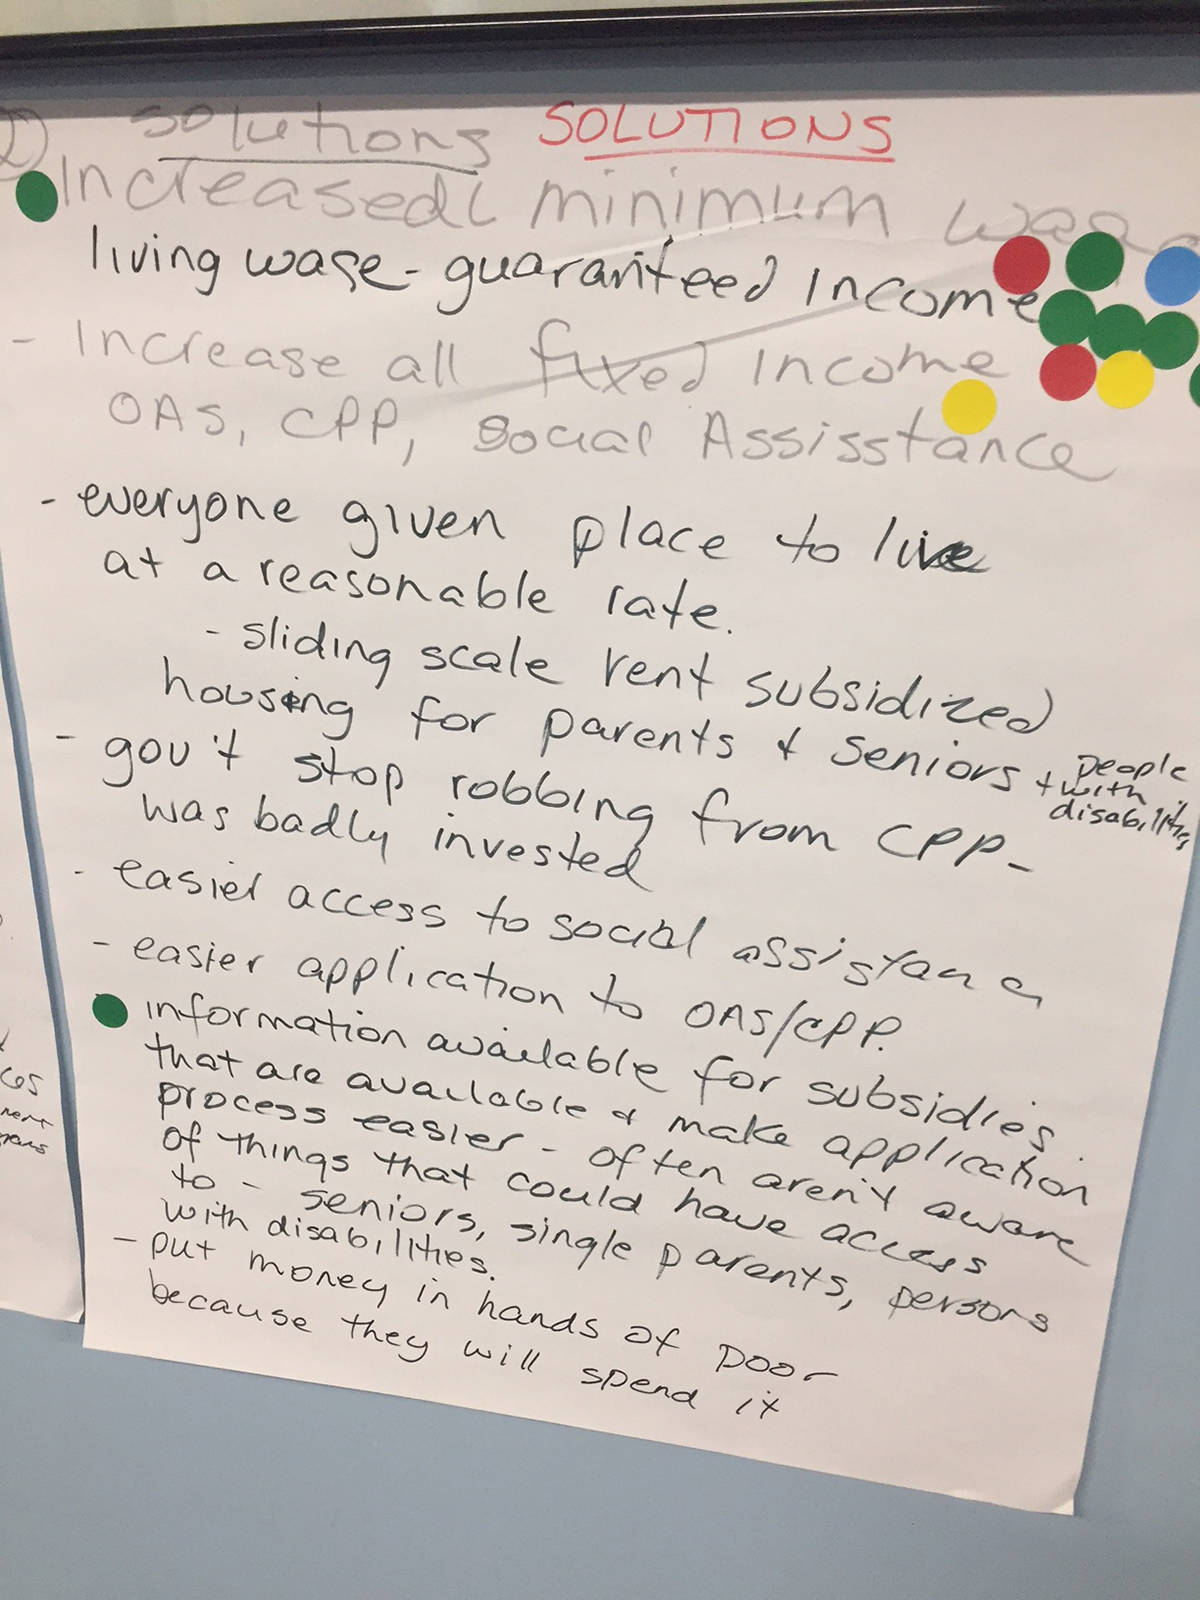 2) solutions SOLUTIONS
Increased minimum wage
living wage - guaranteed income
- Increase all fixed income
OAS, CPP, Social Assisstance
- everyone given place to live
at a reasonable rate.
- sliding scale rent subsidized
housing for parents + seniors + people with disabilities
- gov't stop robbing from CPP -
was badly invested
- easier access to social assistance
- easier application to OAS/CPP.
information available for subsidies
that are available + make application
process easier - often aren't aware
of things that could have access
to - seniors, single parents, persons
with disabilities.
- put money in hands of poor
because they will spend it